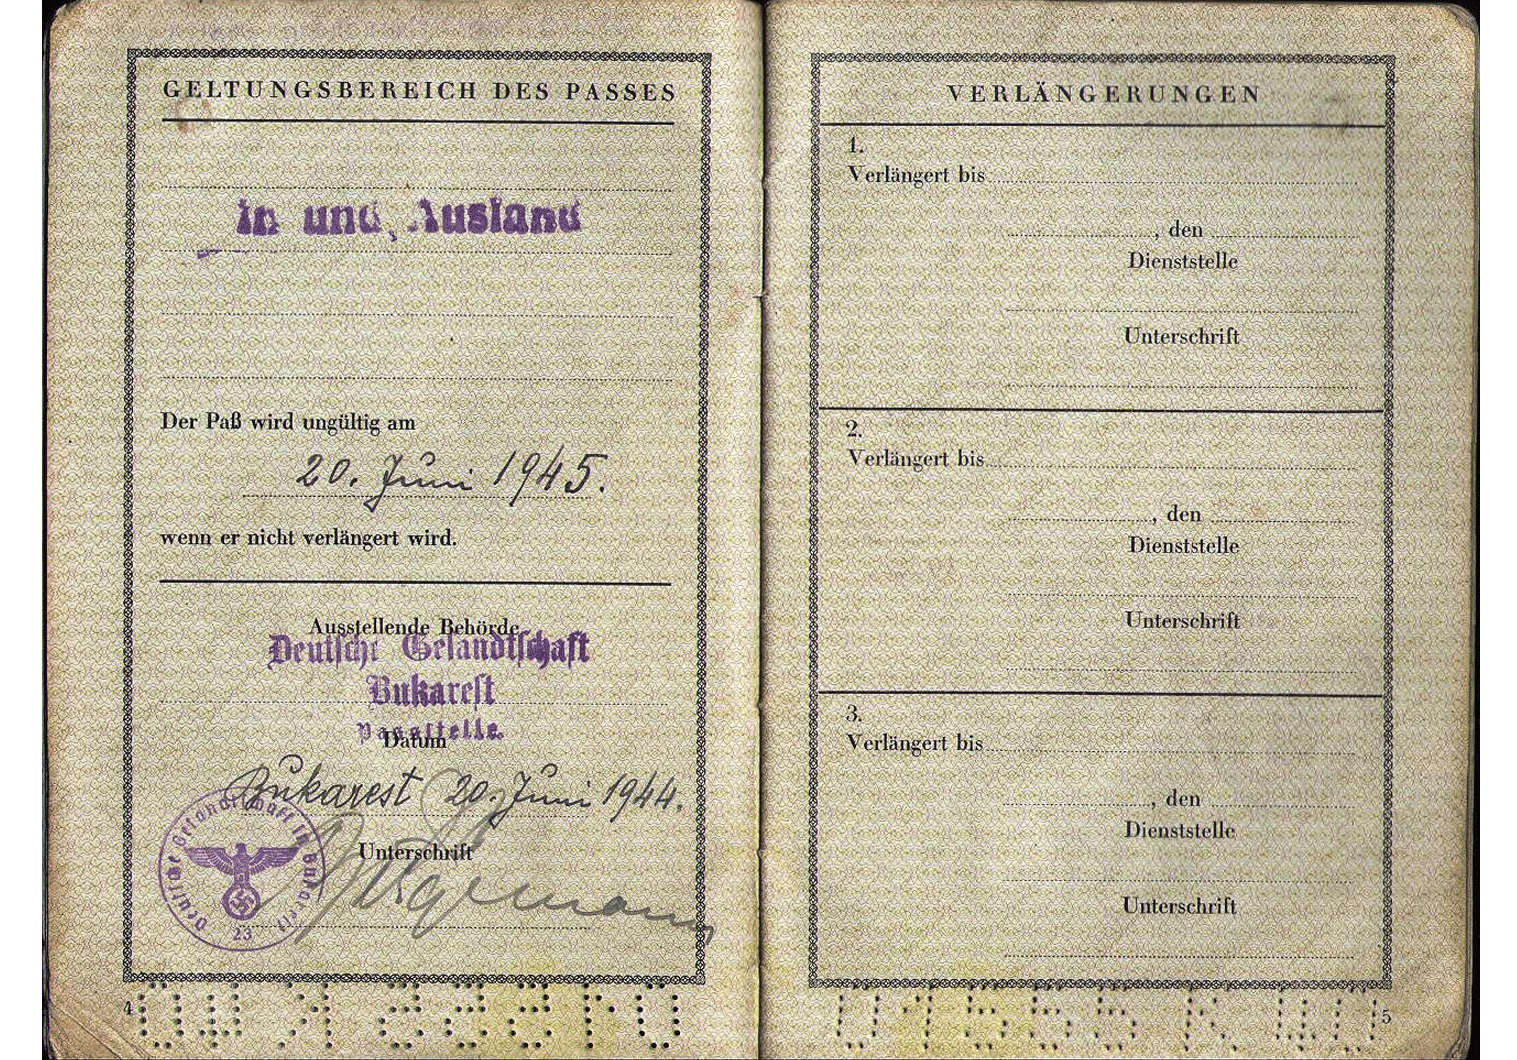 GELTUNGSBEREICH DES PASSES
In und Ausland
Der Paß wird ungültig am
20. Juni 1945.
wenn er nicht verlängert wird.
Ausstellende Behörde
Deutsche Gesandtschaft
Bukarest
Passstelle.
Datum
Bukarest 20. Juni 1944.
Unterschrift
Deutsche Gesandtschaft in Bukarest
23
4
VERLÄNGERUNGEN
1.
Verlängert bis
, den
Dienststelle
Unterschrift
2.
Verlängert bis
, den
Dienststelle
Unterschrift
3.
Verlängert bis
, den
Dienststelle
Unterschrift
5